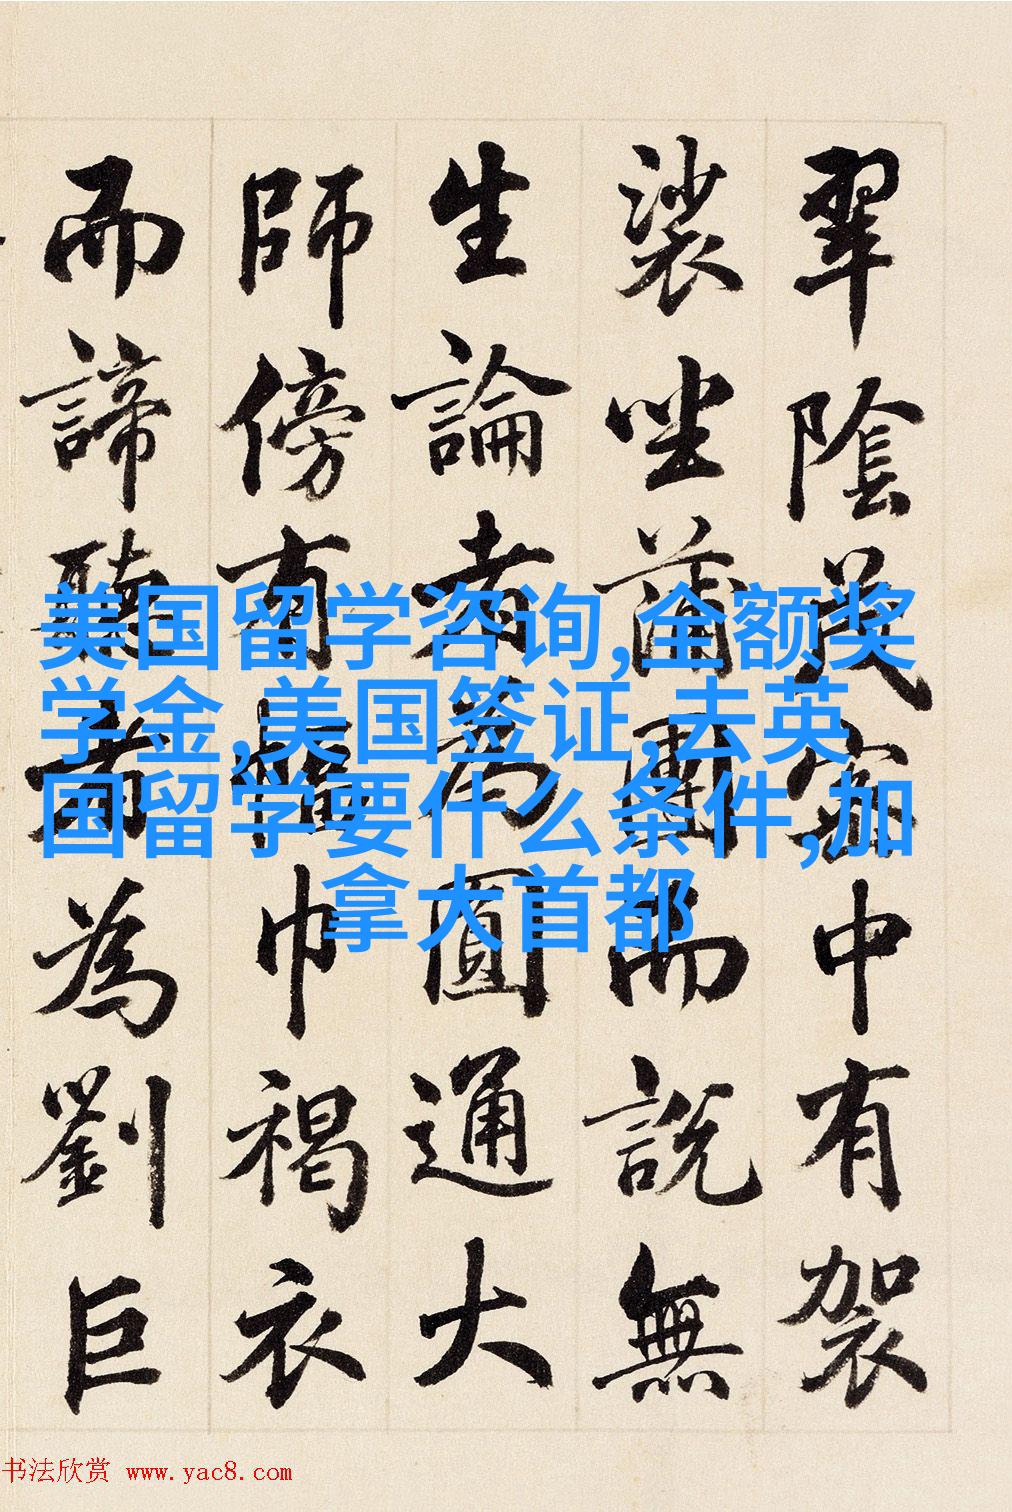 翠陰茂密中有袈
裟坐蒲團而說無
生論者為圓通大
師傍有幅巾褐衣
而諦聽者為劉巨
美国留学咨询,全额奖
学金,美国签证,去英
国留学要什么条件,加
拿大首都
书法欣赏 www.yac8.com